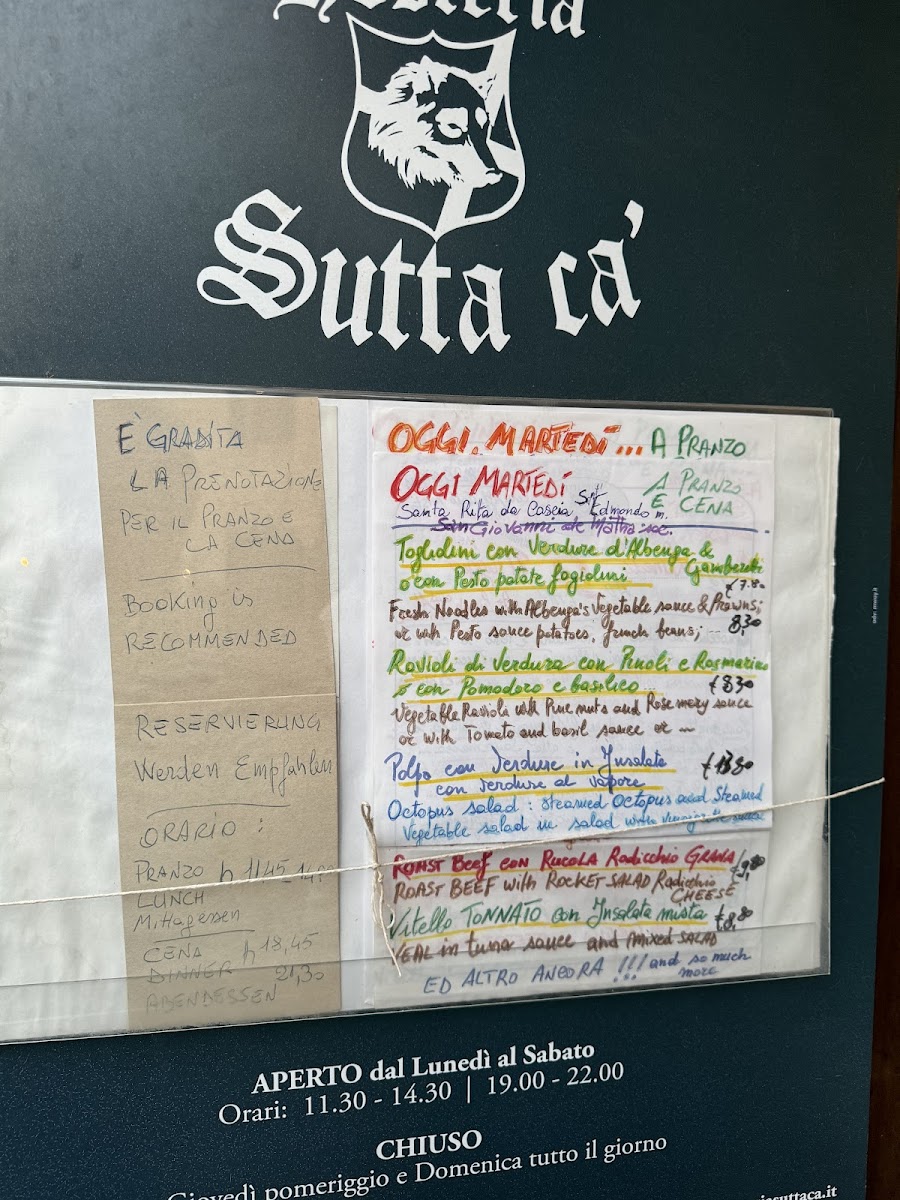 Hosteria
Sutta cà
È GRADITA
LA PRENOTAZIONE
PER IL PRANZO E
LA CENA
BOOKING is
RECOMMENDED
RESERVIERUNG
Werden Empfahlen
ORARIO :
PRANZO h 11,45
LUNCH
Mittagessen
CENA h 18,45
DINNER 21,30
ABENDESSEN
OGGI. MARTEDÍ... A PRANZO
OGGI MARTEDÍ A PRANZO
E CENA
Santa Rita da Cascia Edmondo m.
San Giovanni de Matha
Tagliolini con Verdure d'Albenga &
Gamberetti
o con Pesto patate fagiolini
€ 7.80
Fresh Noodles with Albenga's Vegetable sauce & Prawns;
or with Pesto sauce potatoes, french beans; 8,30
Ravioli di Verdura con Pinoli e Rosmarino
o con Pomodoro e basilico €8.30
Vegetable Ravioli with Pine nuts and Rosemary sauce
or with Tomato and basil sauce or
Polpo con Verdure in Insalata €13.80
con verdure al vapore
Octopus salad : steamed Octopus and Steamed
Vegetable salad in salad with vinaigrette
ROAST Beef con RUCOLA Radicchio GRANA
ROAST BEEF with ROCKET SALAD Radicchio
CHEESE
Vitello TONNATO con Insalata mista €8,80
VEAL in tuna sauce and mixed SALAD
ED ALTRO ANCORA !!! and so much
more
APERTO dal Lunedì al Sabato
Orari: 11.30 - 14.30 | 19.00 - 22.00
CHIUSO
Giovedì pomeriggio e Domenica tutto il giorno
suttaca.it